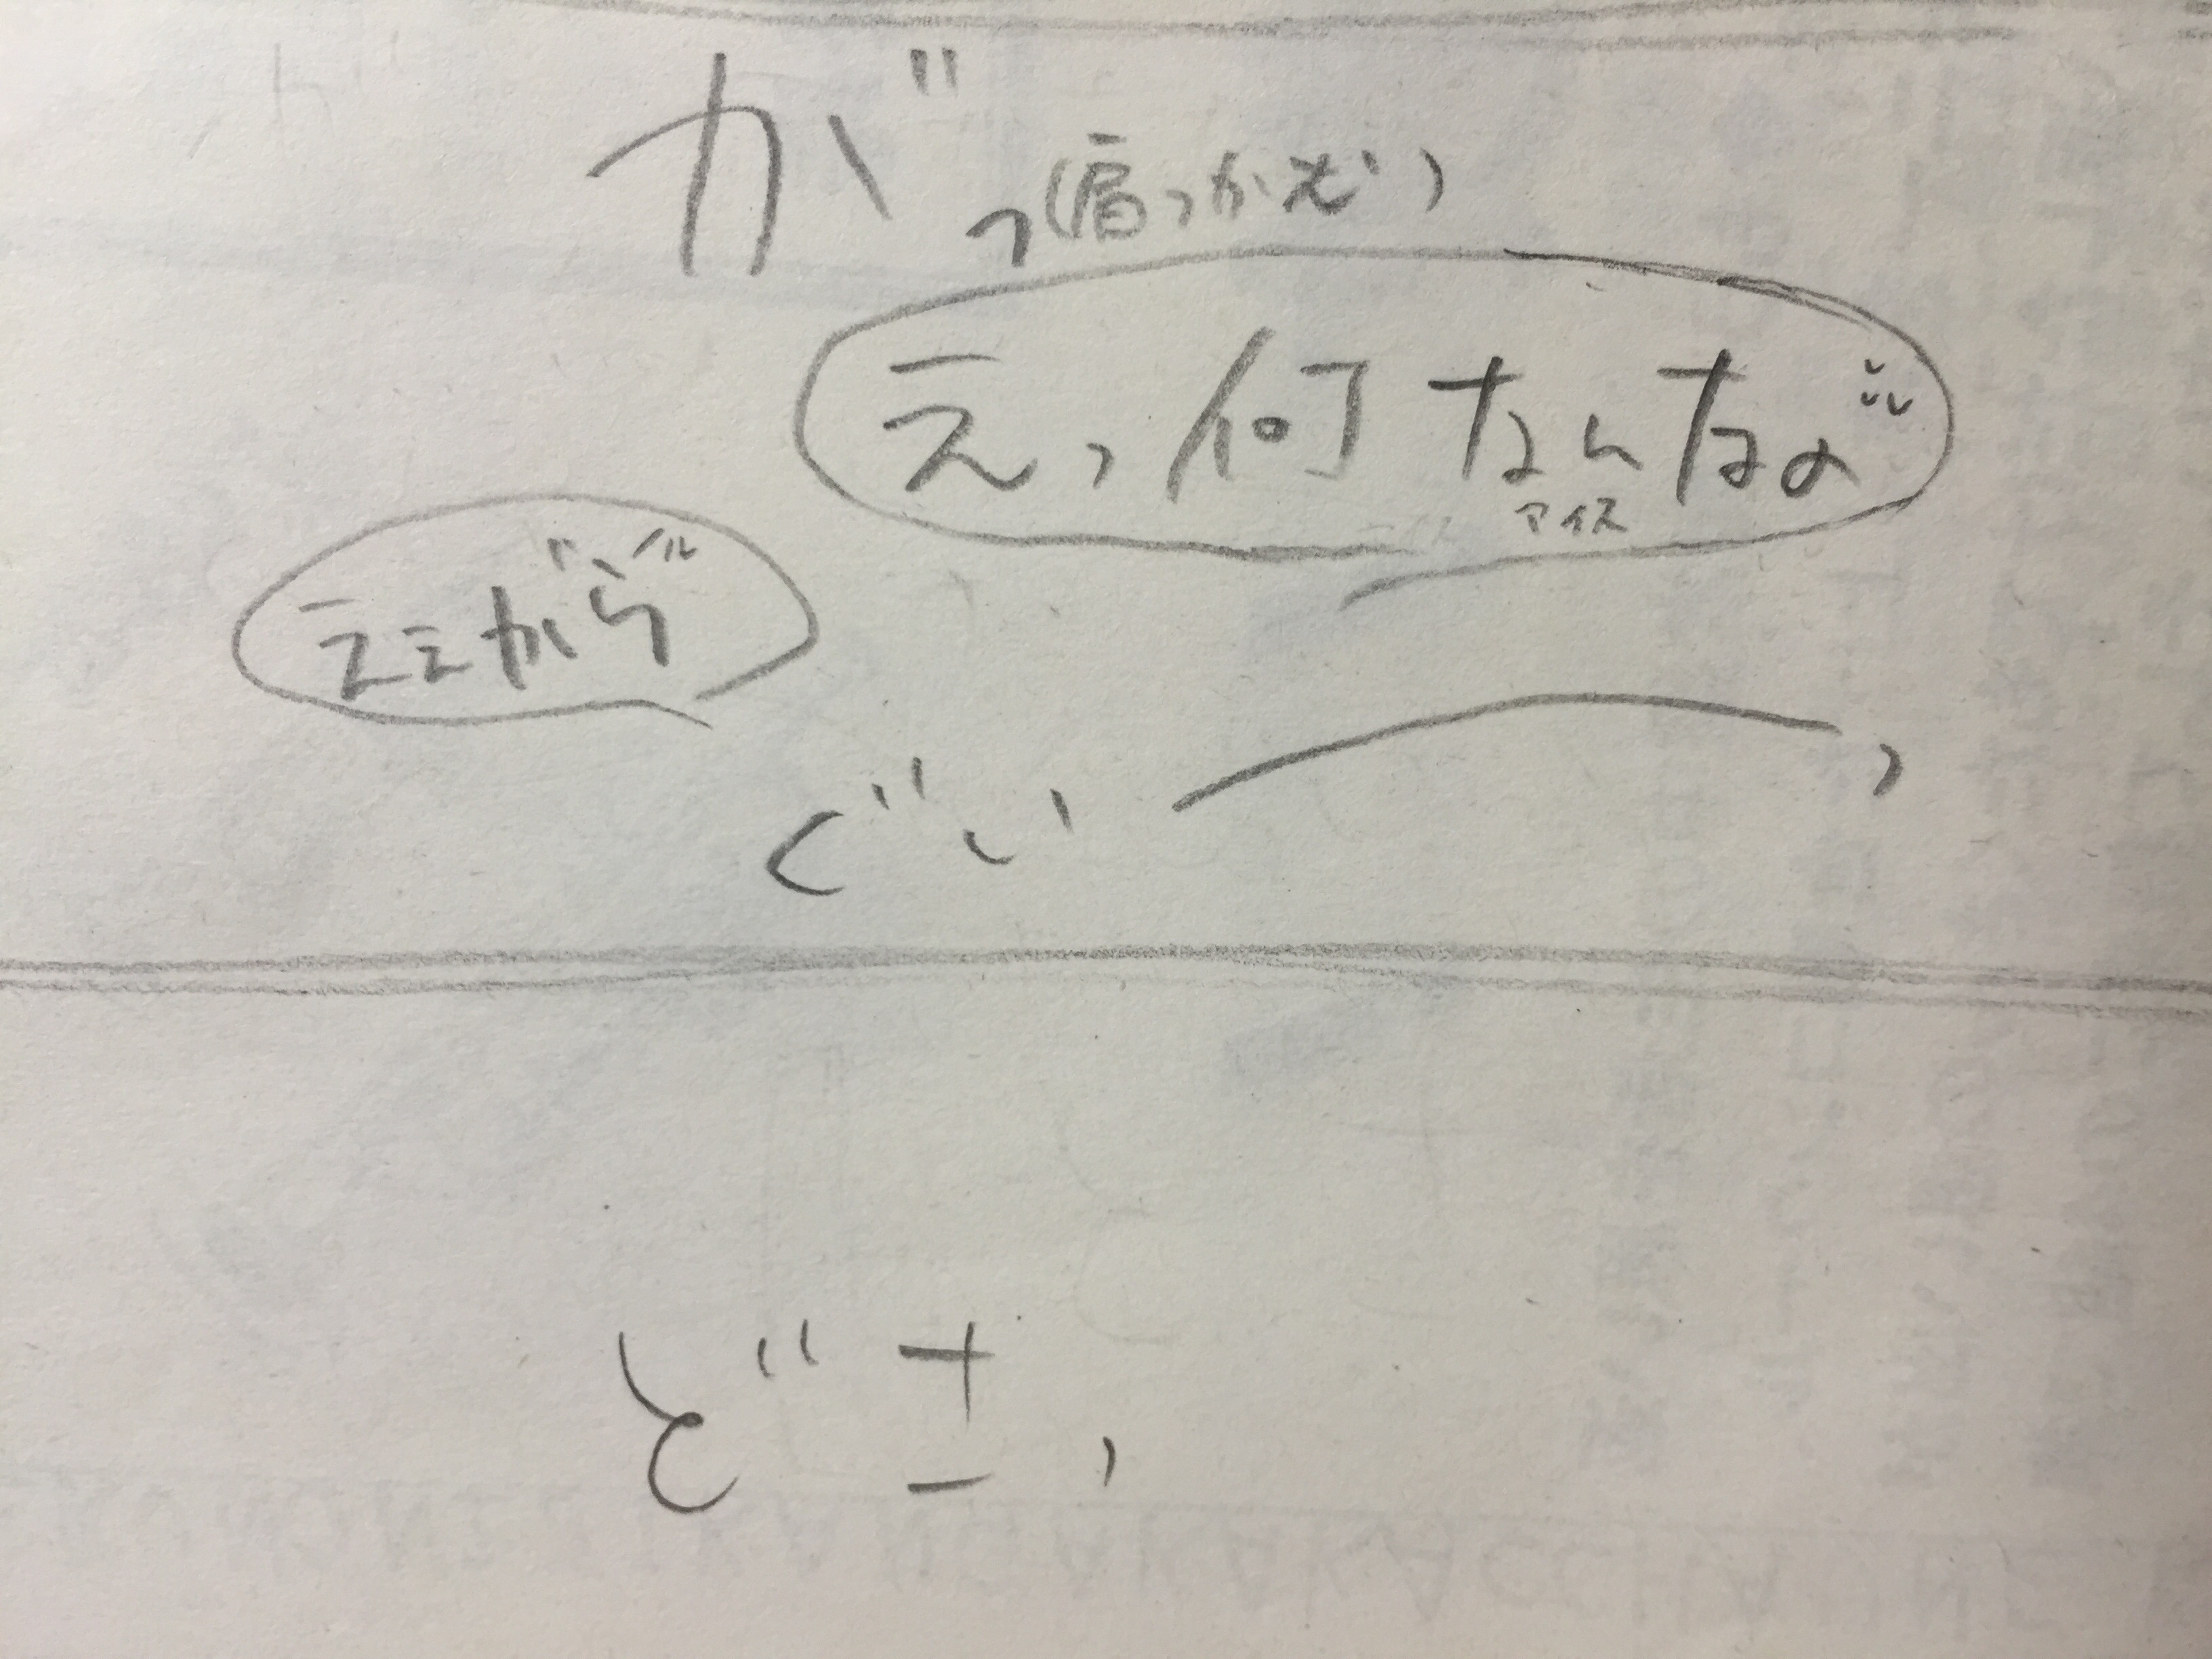 がっ(肩っかえい)
えっ何なんなの
アイス
ええがら
ぐいーっ
どさっ